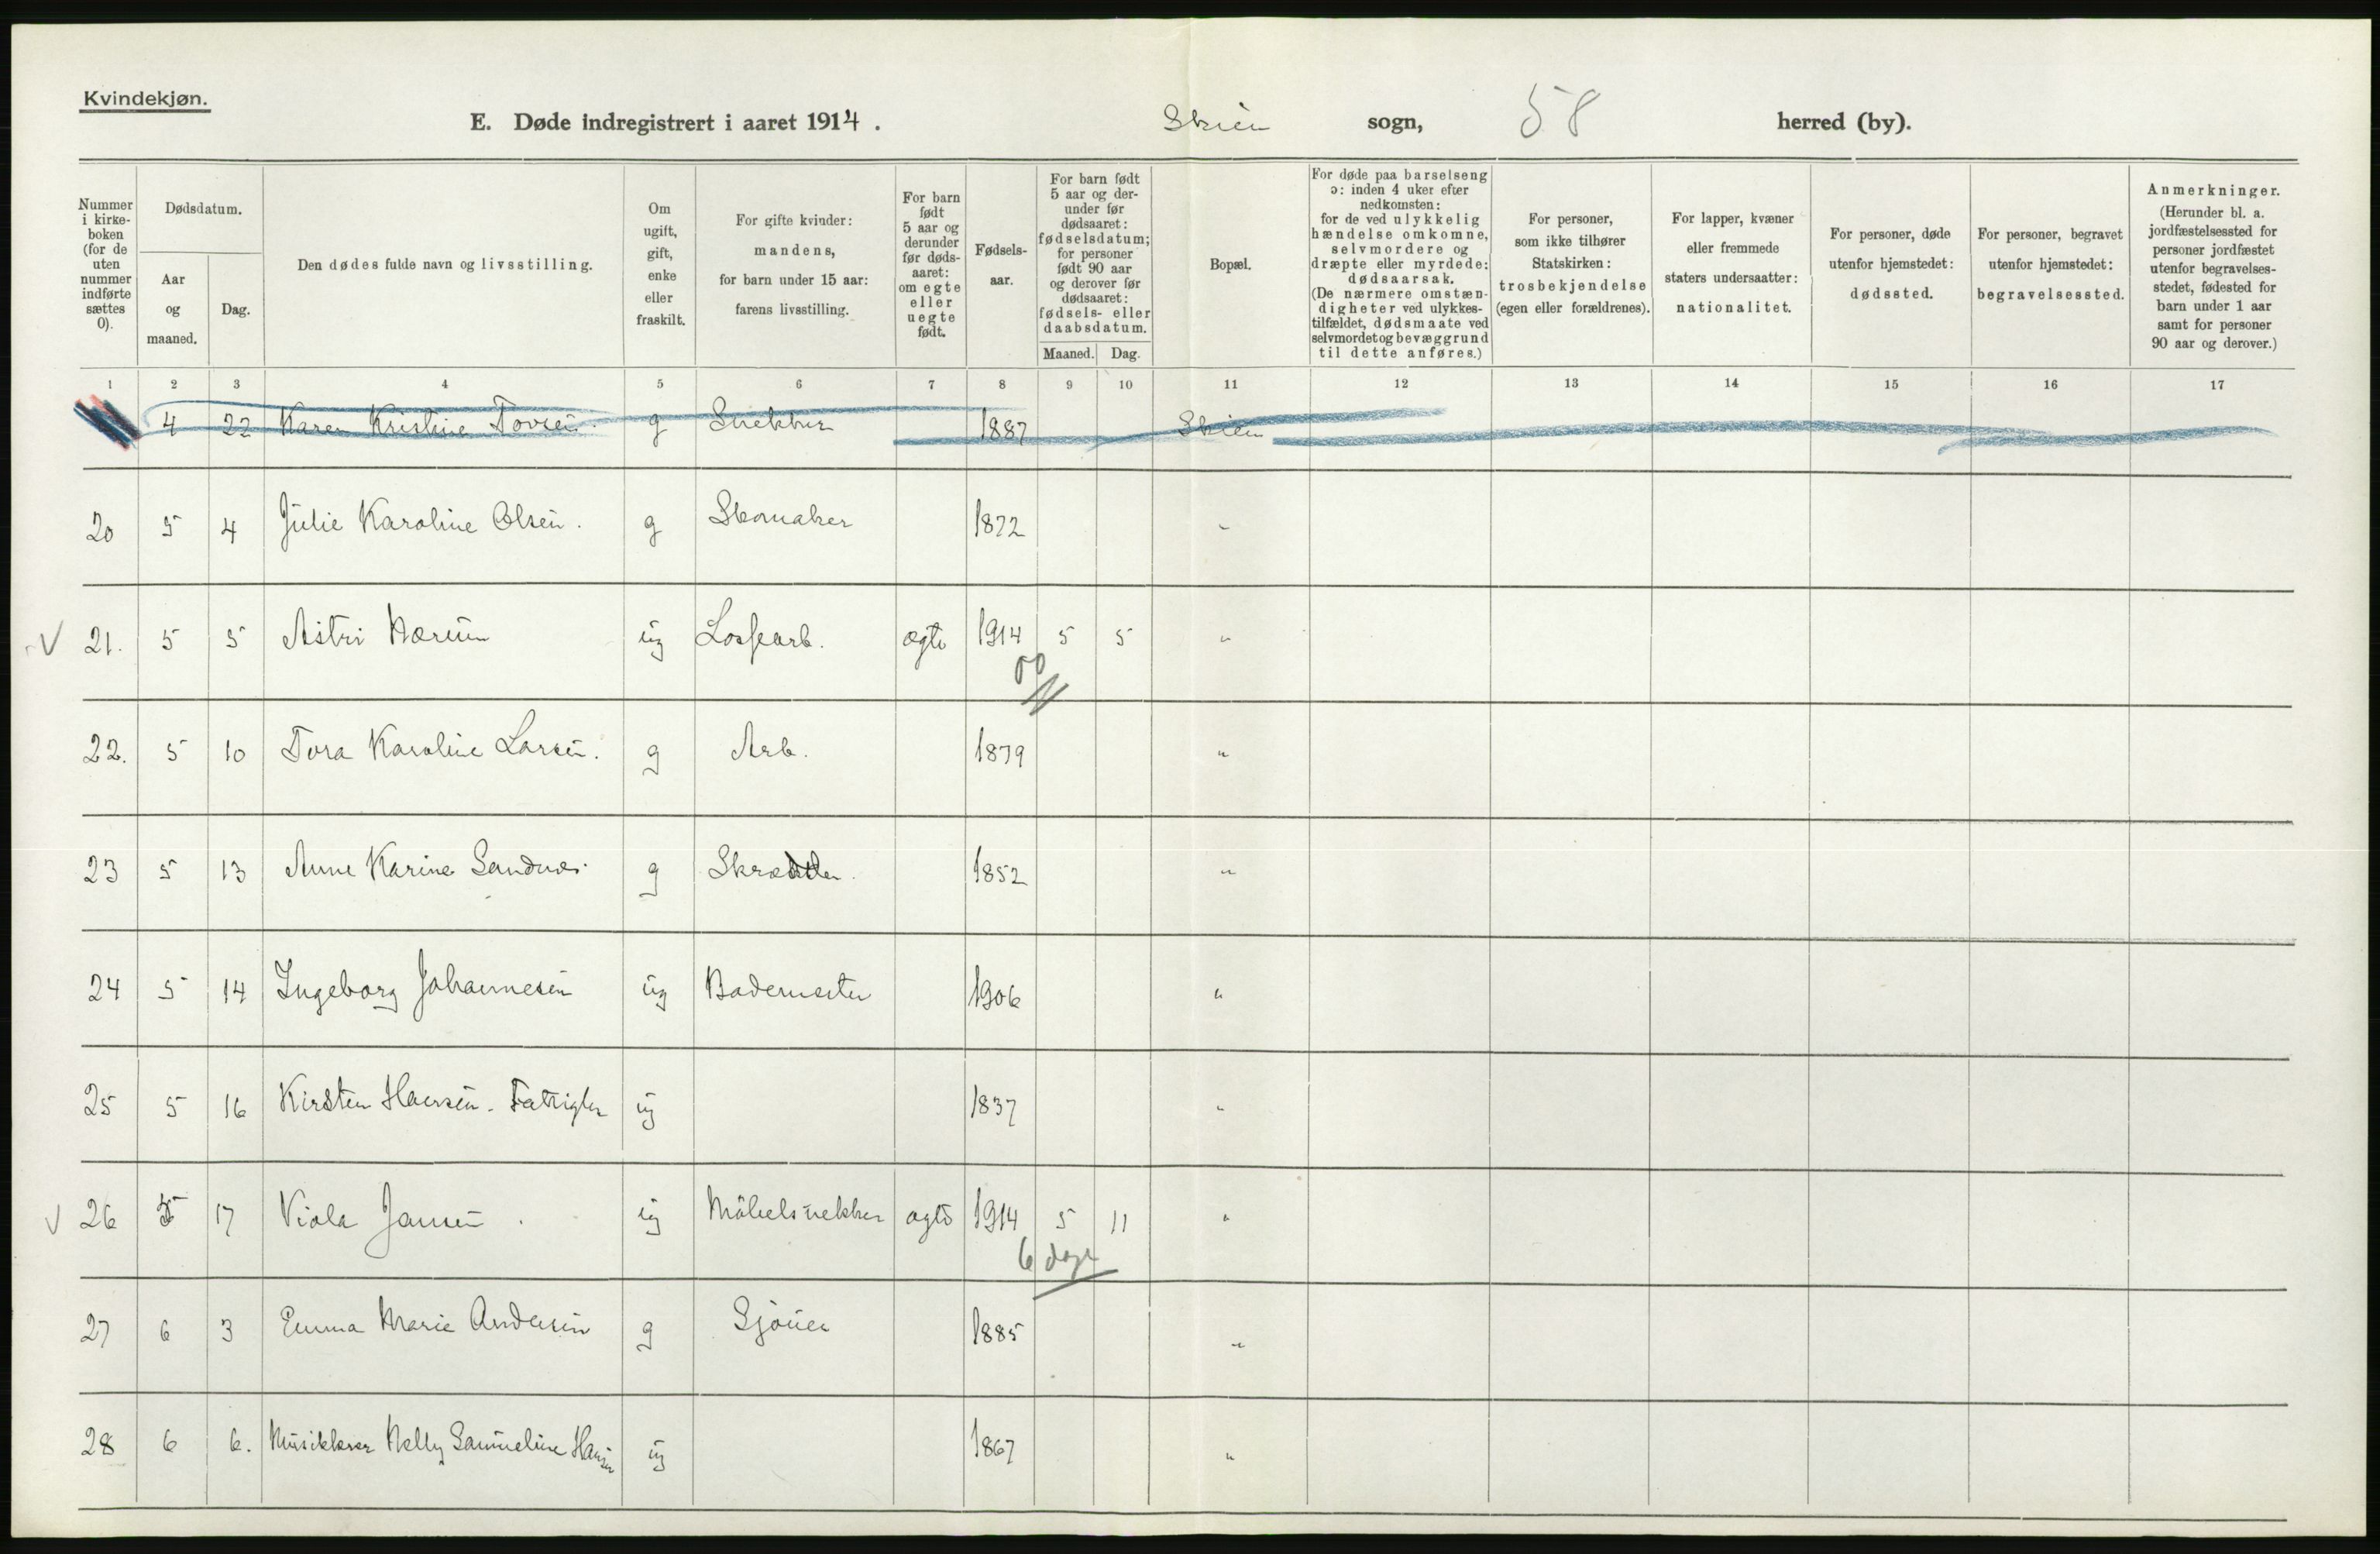 Kvindekjøn.
E. Døde indregistrert i aaret 1914. Skien sogn, 58 herred (by).
Nummer i kirkeboken (for de uten nummer indførte sættes 0).
Dødsdatum.
Aar og maaned.
Dag.
Den dødes fulde navn og livsstilling.
Om ugift, gift, enke eller fraskilt.
For gifte kvinder: mandens, for barn under 15 aar: farens livsstilling.
For barn født 5 aar og derunder før dødsaaret: om egte eller uegte født.
Fødselsaar.
For barn født 5 aar og derunder før dødsaaret: fødselsdatum; for personer født 90 aar og derover før dødsaaret: fødsels- eller daabsdatum.
Maaned. Dag.
Bopæl.
For døde paa barselseng ɔ: inden 4 uker efter nedkomsten: for de ved ulykkelig hændelse omkomne, selvmordere og dræpte eller myrdede: dødsaarsak. (De nærmere omstændigheter ved ulykkestilfældet, dødsmaate ved selvmordet og bevæggrund til dette anføres.)
For personer, som ikke tilhører Statskirken: trosbekjendelse (egen eller forældrenes).
For lapper, kvæner eller fremmede staters undersaatter: nationalitet.
For personer, døde utenfor hjemstedet: dødssted.
For personer, begravet utenfor hjemstedet: begravelsessted.
Anmerkninger. (Herunder bl. a. jordfæstelsessted for personer jordfæstet utenfor begravelsesstedet, fødested for barn under 1 aar samt for personer 90 aar og derover.)
1 2 3 4 5 6 7 8 9 10 11 12 13 14 15 16 17
4 22 Karen Kristine Tovsen. g Snekker 1887 Skien
20 5 4 Julie Karoline Olsen. g Skomaker 1872 "
V 21. 5 5 Astri Nærum ug Lossearb. ægte 1914 5 5 "
22. 5 10 Tora Karoline Larsen. g Arb. 1879 "
23 5 13 Anne Karine Sandnes. g Skrædder. 1852 "
24 5 14 Ingeborg Johannesen ug Bademester 1906 "
25 5 16 Kirsten Hansen. Fattiglem ug 1837 "
V 26 5 17 Viola Jansen. ug Møbelsnekker ægte 1914 5 11 "
6 dage
27 6 3 Emma Marie Andersen g Sjøuer 1885 "
28 6 6. Musiklærer Nelly Samueline Hansen ug 1867 "